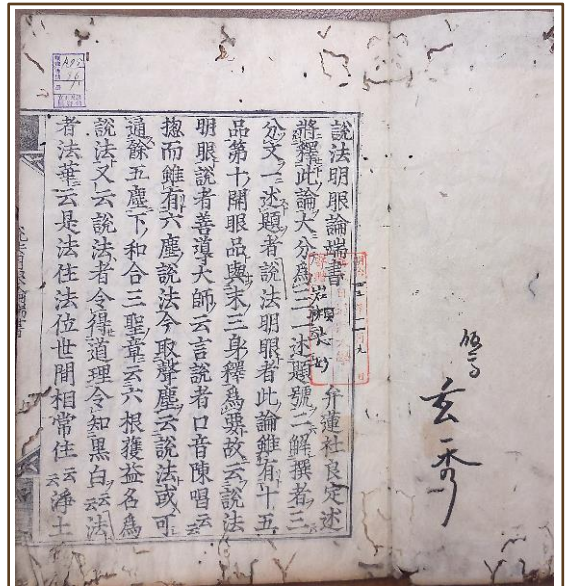 説法明眼論端書
弁蓮社良定述
將釋此論大分為三一述題號二解撰者三
分文一述題者説法明眼者此論雖有十五
品第十開眼品與末三身釋為要故云説法
明眼説者善導大師云言説者口音陳唱云
揔而雖有六塵説法今取聲塵云説法或可
通餘五塵下和合三聖章云六根獲益名為
説法又云説法者令得道理令知黒白云云法
者法華云是法住法位世間相常住云云淨土
玄秀